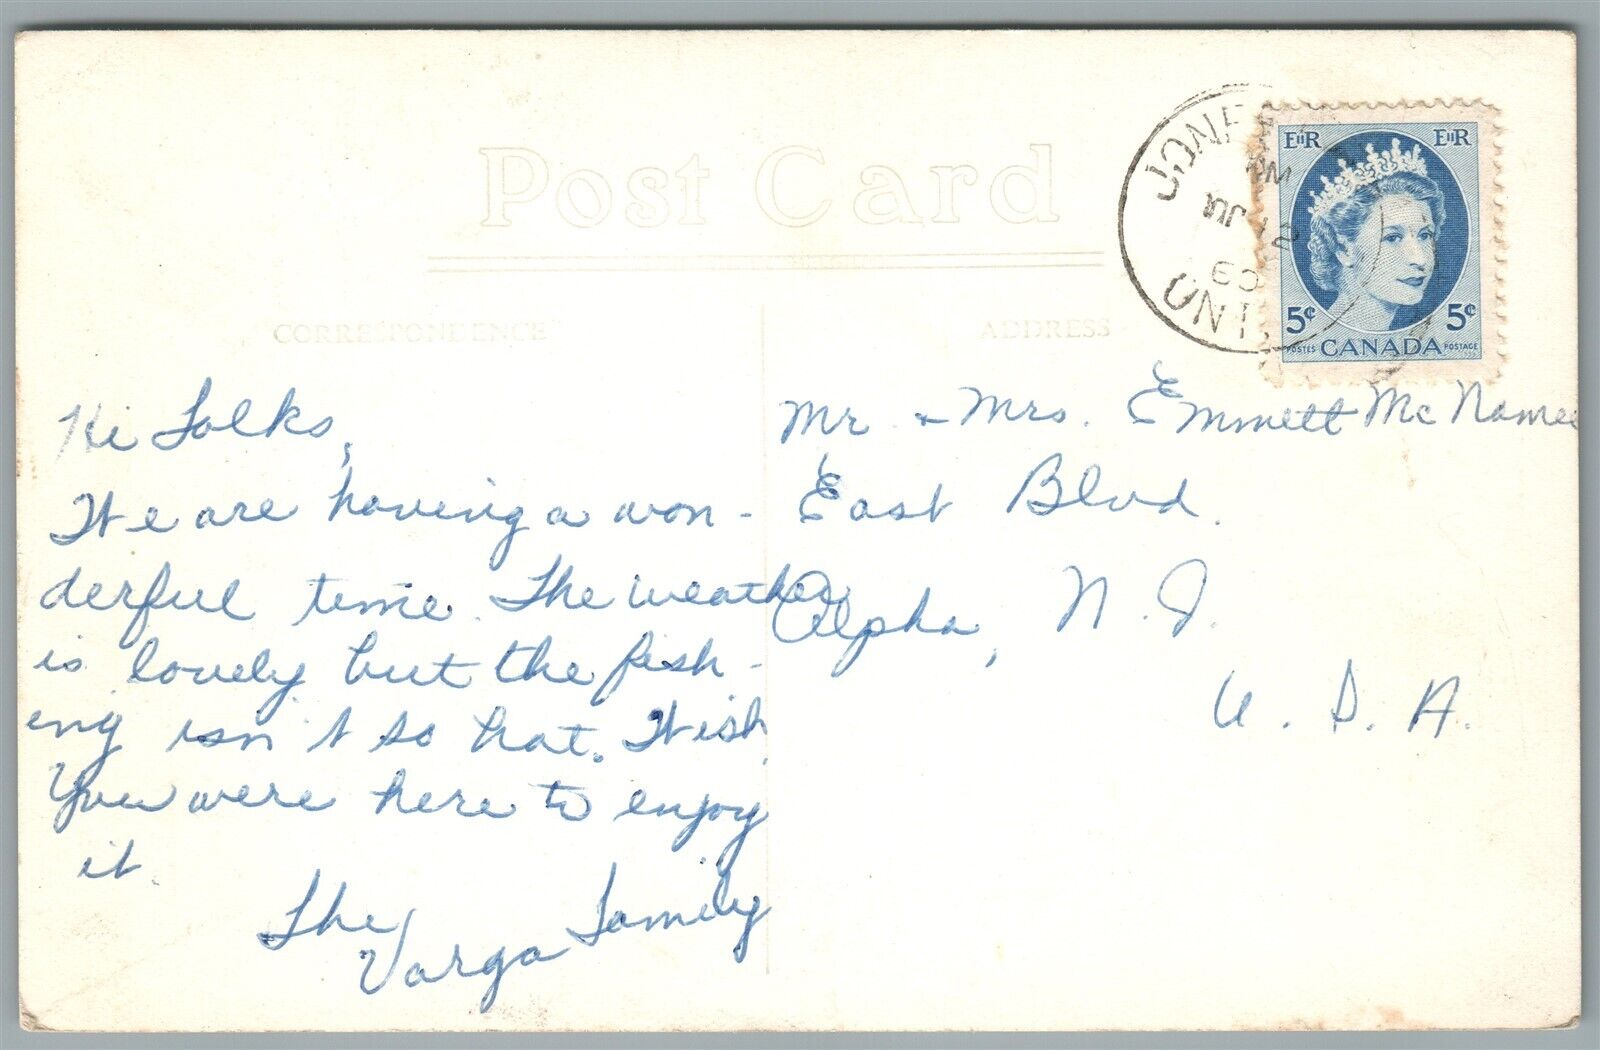 Post Card
CORRESPONDENCE
ADDRESS
PM
JUL 12
60
ONT.
EIIR EIIR
5¢ 5¢
POSTES CANADA POSTAGE
Hi Folks,
We are having a won-
derful time. The weather
is lovely but the fish-
ing isn't so hot. Wish
you were here to enjoy
it.
The
Varga Family
Mr. & Mrs. Emmett McNamee
East Blvd.
Alpha, N. J.
U. S. A.